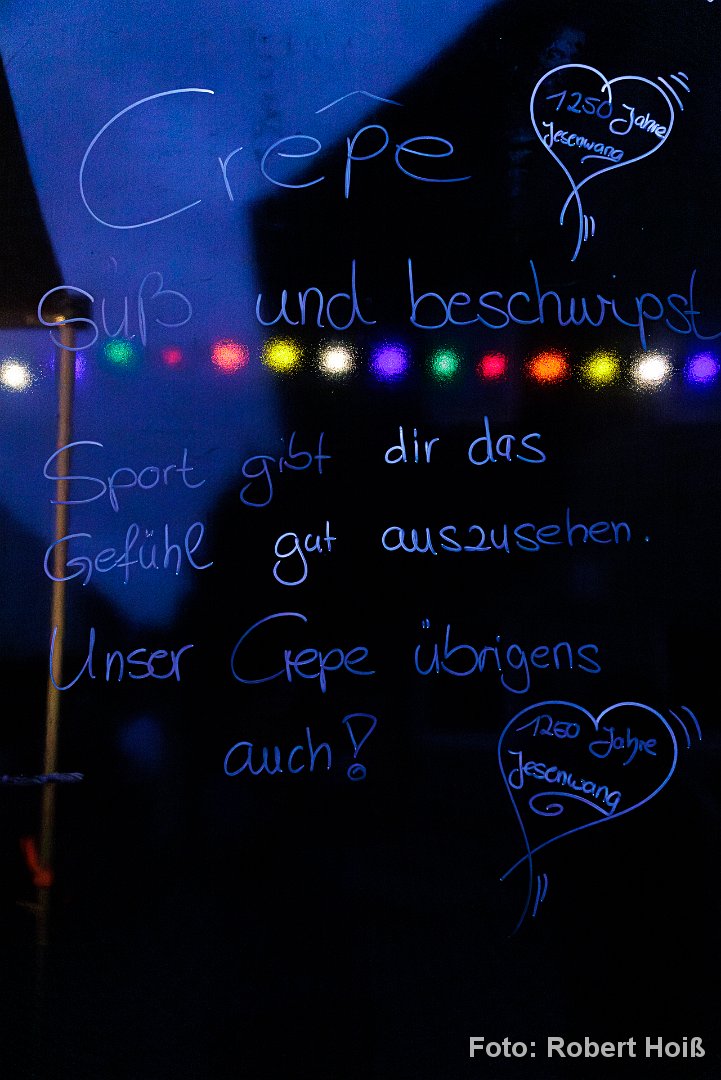 Crêpe
1250 Jahre
Jesenwang
Süß und beschwipst
Sport gibt dir das
Gefühl gut auszusehen.
Unser Crepe übrigens
auch!
1250 Jahre
Jesenwang
Foto: Robert Hoiß